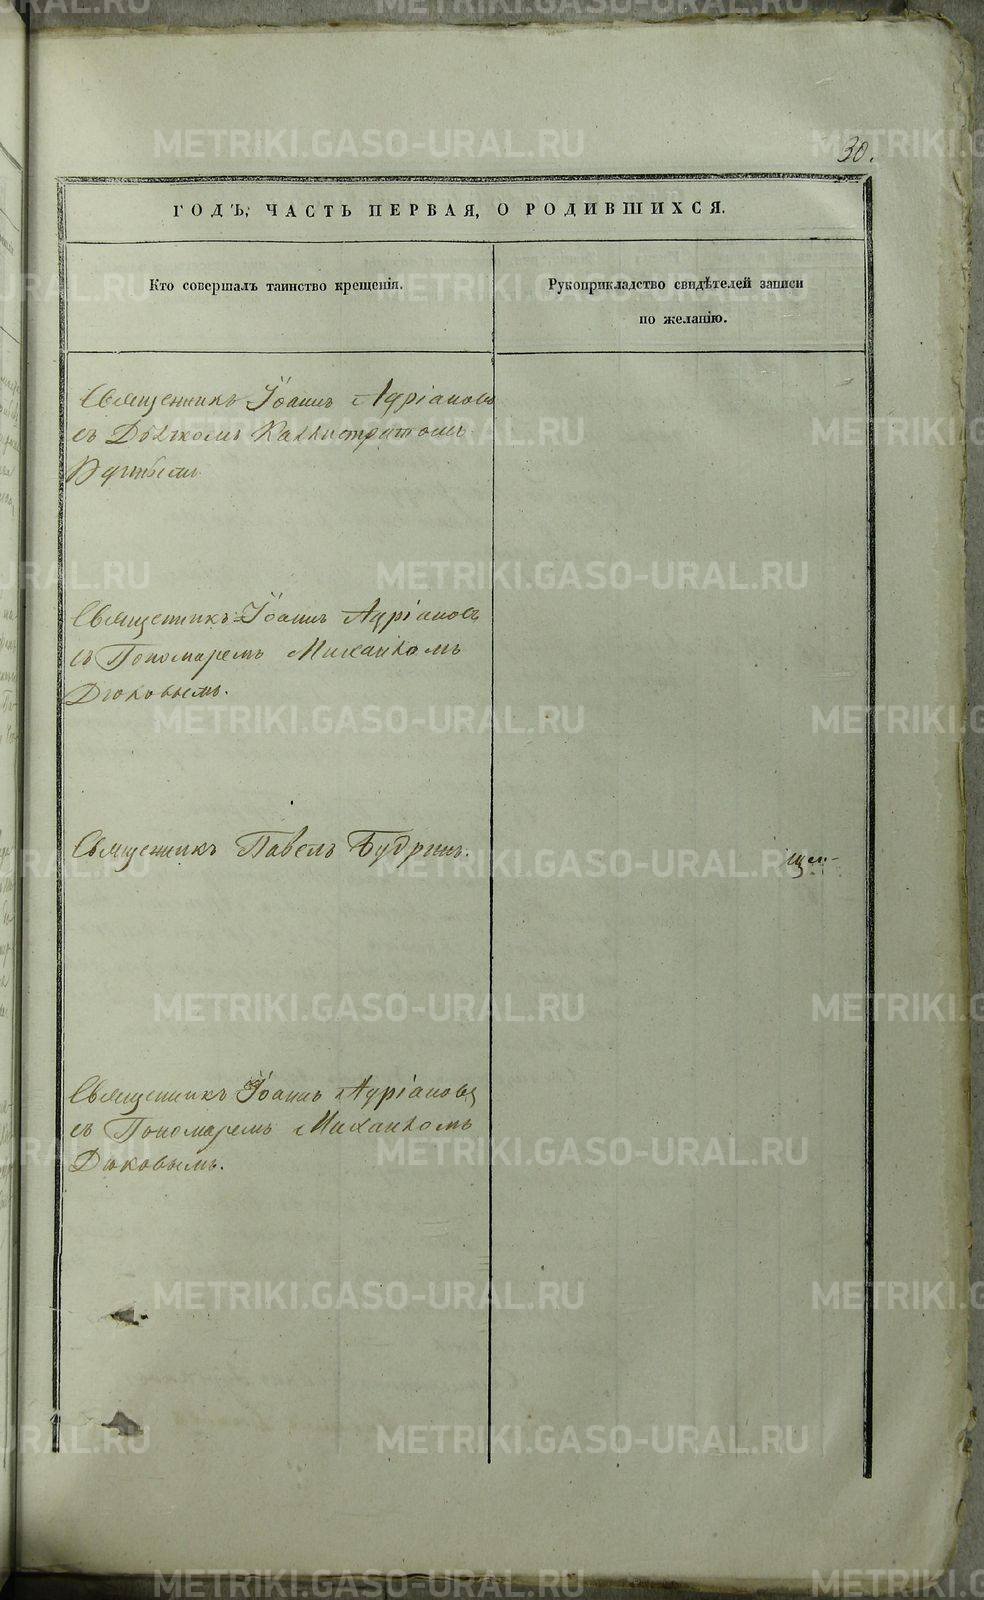 30.
ГОДЪ, ЧАСТЬ ПЕРВАЯ, О РОДИВШИХСЯ.
Кто совершалъ таинство крещенія.
Рукоприкладство свидѣтелей записи
по желанію.
Священникъ Іоаннъ Адріановъ
съ Дьячкомъ Каллистратомъ
Священникъ Іоаннъ Адріановъ
съ Пономаремъ Михаиломъ
Дюковымъ.
Священникъ Павелъ Будринъ.
Священникъ Іоаннъ Адріановъ
съ Пономаремъ Михаиломъ
Дюковымъ.
METRIKI.GASO-URAL.RU